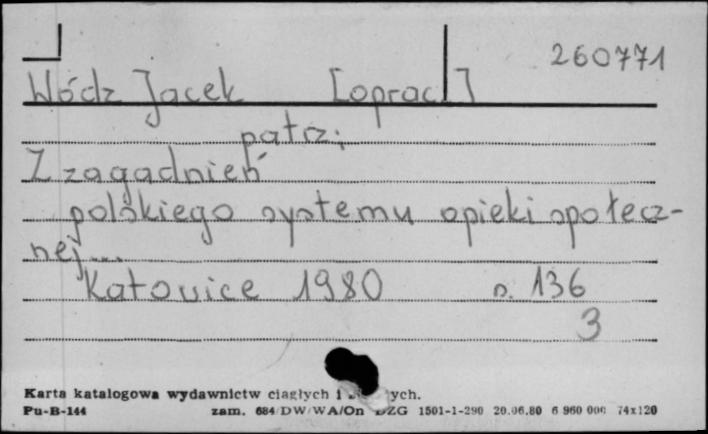 260771
Wódz Jacek [oprac.]
patrz:
Z zagadnień
polskiego systemu opieki społecz-
nej...
Katowice 1980 s. 136
3
Karta katalogowa wydawnictw ciągłych i ych.
Pu-B-144 zam. 684/DW/WA/On DZG 1501-1-290 20.06.80 6 960 000 74x120